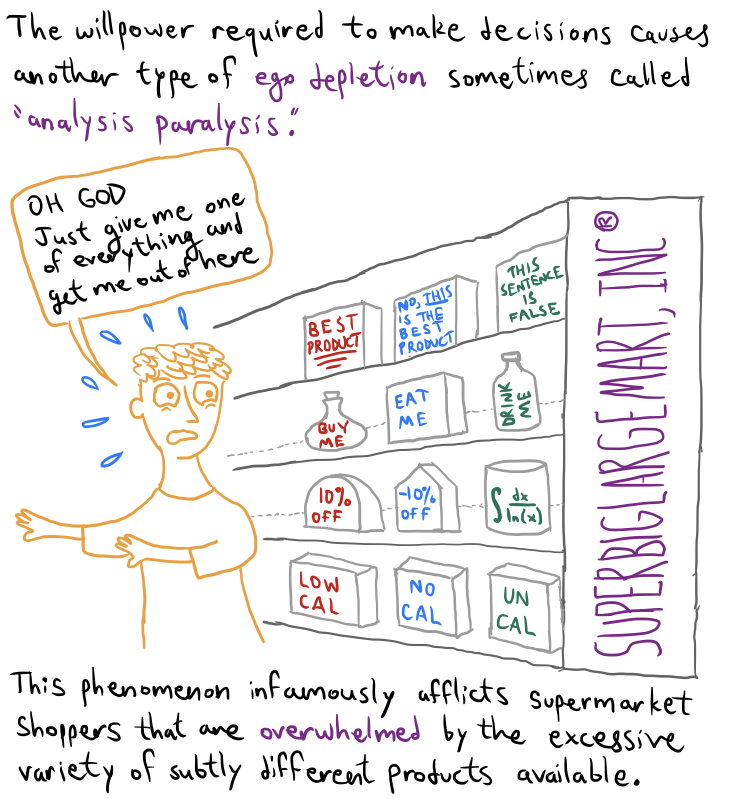 The willpower required to make decisions causes
another type of ego depletion sometimes called
"analysis paralysis."
OH GOD
Just give me one
of everything and
get me out of here
BEST
PRODUCT
NO, THIS
IS THE
BEST
PRODUCT
THIS
SENTENCE
IS
FALSE
BUY
ME
EAT
ME
DRINK
ME
10%
OFF
-10%
OFF
∫ dx
ln(x)
LOW
CAL
NO
CAL
UN
CAL
SUPERBIGLARGEMART, INC®
This phenomenon infamously afflicts supermarket
shoppers that are overwhelmed by the excessive
variety of subtly different products available.